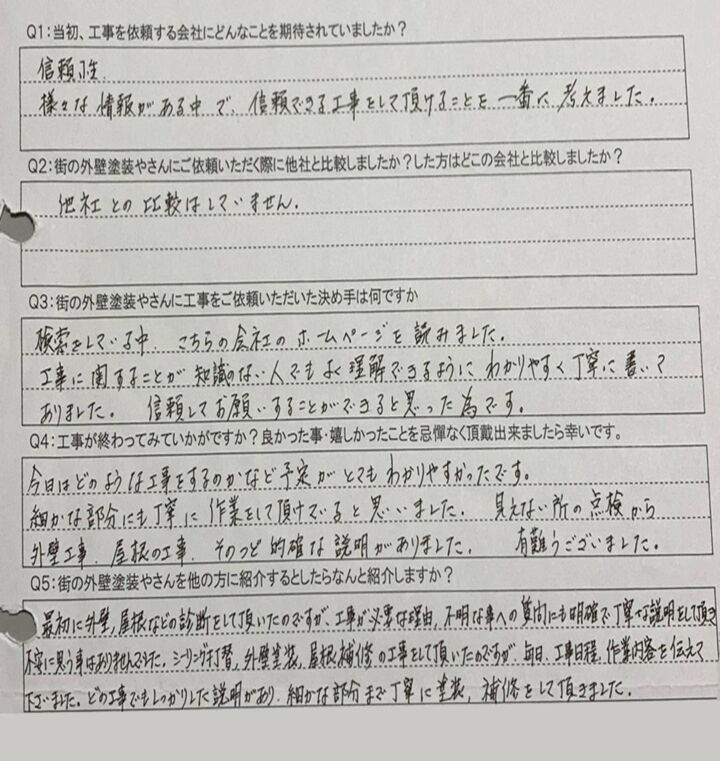 Q1：当初、工事を依頼する会社にどんなことを期待されていましたか？
信頼性.
様々な情報がある中で、信頼できる工事をして頂けることを一番に考えました。
Q2：街の外壁塗装やさんにご依頼いただく際に他社と比較しましたか？した方はどこの会社と比較しましたか？
他社との比較はしていません.
Q3：街の外壁塗装やさんに工事をご依頼いただいた決め手は何ですか
検索をしている中、こちらの会社のホームページを読みました.
工事に関することが知識のない人でもよく理解できるようにわかりやすく丁寧に書いて
ありました。信頼してお願いすることができると思った為です。
Q4：工事が終わってみていかがですか？良かった事・嬉しかったことを忌憚なく頂戴出来ましたら幸いです。
今日はどのような工事をするのかなど予定がとてもわかりやすかったです。
細かな部分にも丁寧に作業をして頂けていると思いました. 見えない所の点検から
外壁工事、屋根の工事、そのつど的確な説明がありました. 有難うございました.
Q5：街の外壁塗装やさんを他の方に紹介するとしたらなんと紹介しますか？
最初に外壁,屋根などの診断をして頂いたのですが、工事が必要な理由,不明な事への質問にも明確で丁寧な説明をして頂き
不安に思う事はありませんでした. シーリング打替、外壁塗装,屋根補修の工事をして頂いたのですが、毎日、工事日程、作業内容を伝えて
下さいました。どの工事でもしっかりした説明があり、細かな部分まで丁寧に塗装, 補修をして頂きました.